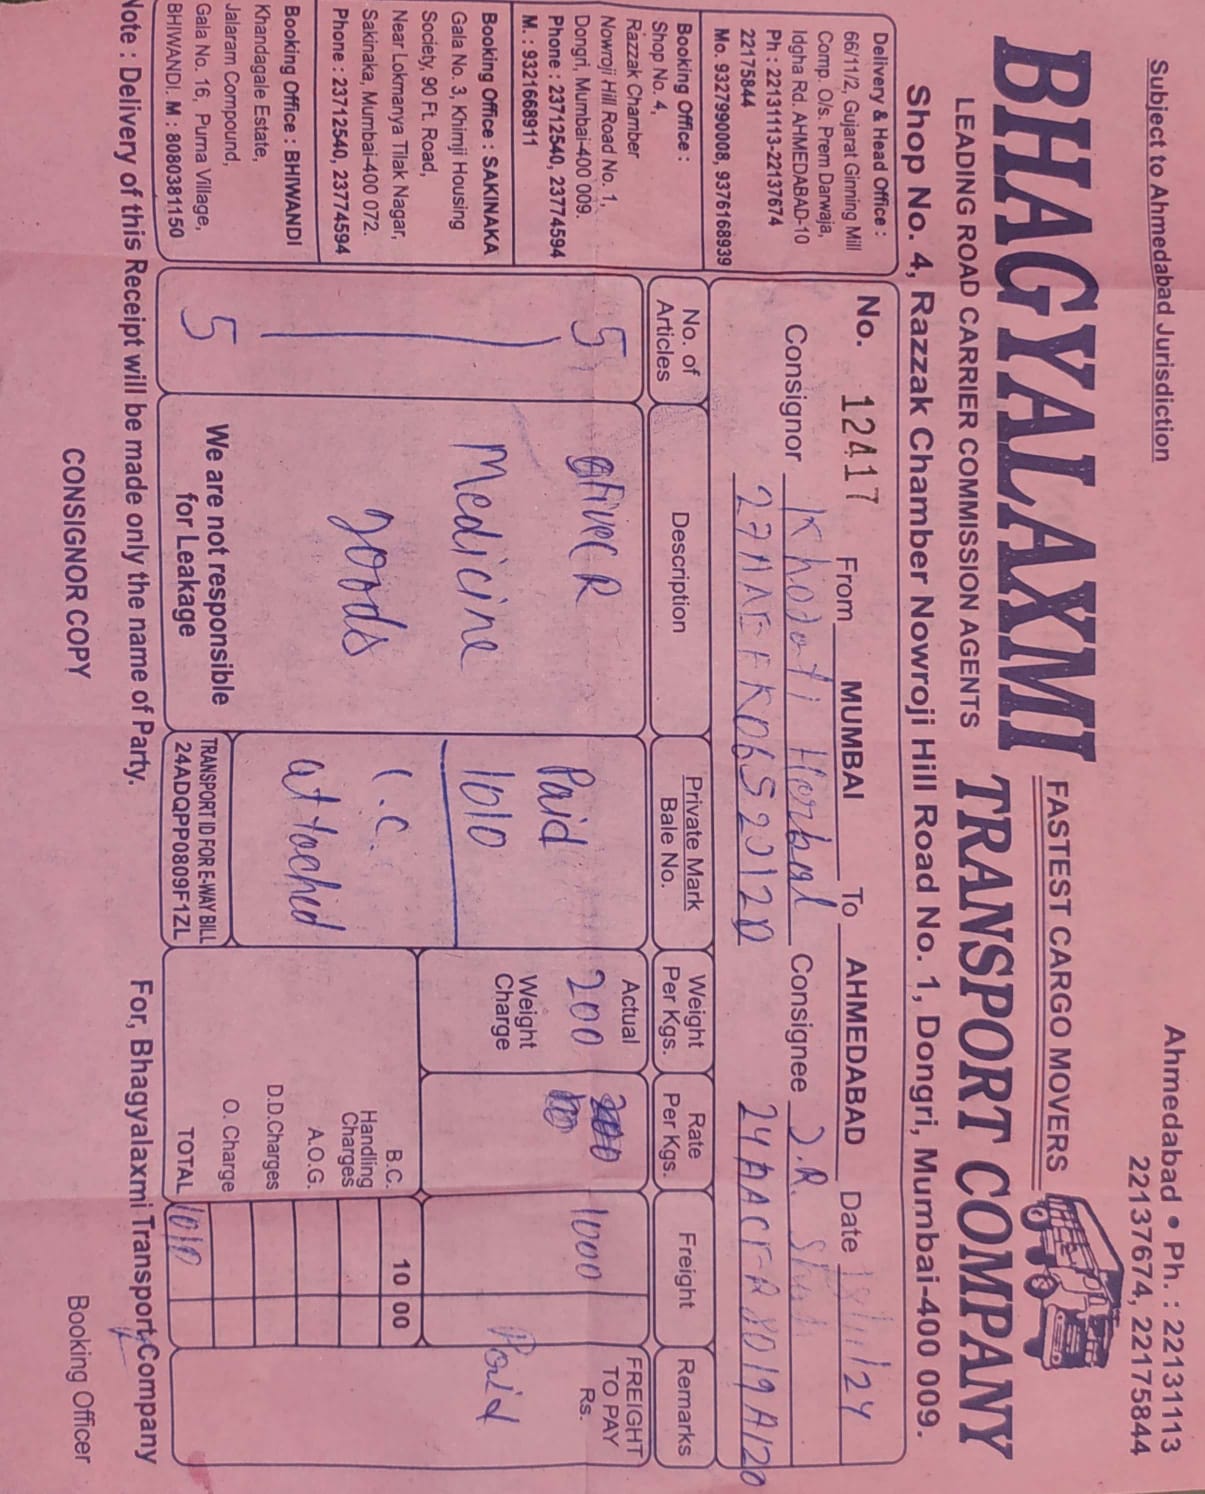 Subject to Ahmedabad Jurisdiction
Ahmedabad • Ph. : 22131113
22137674, 22175844
BHAGYALAXMI TRANSPORT COMPANY
FASTEST CARGO MOVERS
LEADING ROAD CARRIER COMMISSION AGENTS
Shop No. 4, Razzak Chamber Nowroji Hill Road No. 1, Dongri, Mumbai-400 009.
Delivery & Head Office :
66/11/2, Gujarat Ginning Mill
Comp. O/s. Prem Darwaja,
Idgha Rd. AHMEDABAD-10
Ph : 22131113-22137674
22175844
Mo. 9327990008, 9376168939
Booking Office :
Shop No. 4,
Razzak Chamber
Nowroji Hill Road No. 1,
Dongri, Mumbai-400 009.
Phone : 23712540, 23774594
M. : 9321668911
Booking Office : SAKINAKA
Gala No. 3, Khimji Housing
Society, 90 Ft. Road,
Near Lokmanya Tilak Nagar,
Sakinaka, Mumbai-400 072.
Phone : 23712540, 23774594
Booking Office : BHIWANDI
Khandagale Estate,
Jalaram Compound,
Gala No. 16, Purna Village,
BHIWANDI. M : 8080381150
No. 12417 From MUMBAI To AHMEDABAD Date /11/24
Consignor Khodati Herbal Consignee J.R.
No. of Articles
Description
Private Mark
Bale No.
Weight Per Kgs.
Rate Per Kgs.
Freight
Remarks
5
Medicine
goods
5
We are not responsible
for Leakage
Paid
1010
attached
TRANSPORT ID FOR E-WAY BILL
24ADQPP0809F1ZL
Actual
200
Weight
Charge
1000
FREIGHT
TO PAY
Rs.
Paid
B.C. 10 00
Handling
Charges
A.O.G.
D.D.Charges
O. Charge
TOTAL 1010
Note : Delivery of this Receipt will be made only the name of Party.
For, Bhagyalaxmi Transport Company
CONSIGNOR COPY
Booking Officer